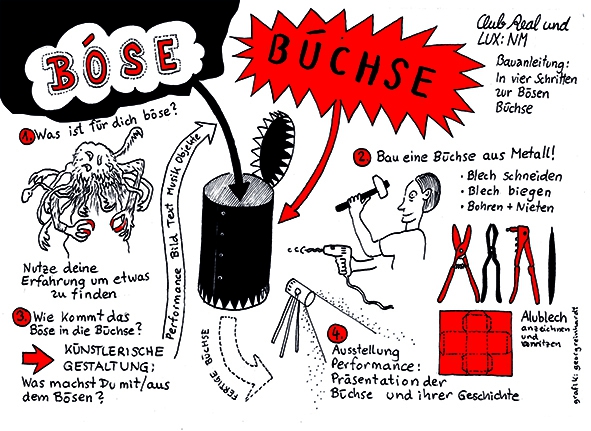 BÖSE
BÜCHSE
Club Real und
LUX: NM
Bauanleitung:
In vier Schritten
zur Bösen
Büchse
1. Was ist für dich böse?
Nutze deine
Erfahrung um etwas
zu finden
2. Bau eine Büchse aus Metall!
• Blech schneiden
• Blech biegen
• Bohren + Nieten
Alublech
anzeichnen
und
vorritzen
3. Wie kommt das
Böse in die Büchse?
KÜNSTLERISCHE
GESTALTUNG:
Was machst Du mit/aus
dem Bösen?
Performance Bild Text Musik Objekte
FERTIGE BÜCHSE
4.
Ausstellung
Performance:
Präsentation der
Büchse und ihrer Geschichte
grafik: georgreinhardt